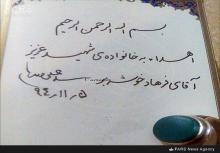 بسم الله الرحمن الرحیم
اهداء به خانواده‌ی شهید عزیز
آقای فرهاد خوشه‌بر... سید علی
۹۴/۱۱/۵
FARS News Agency